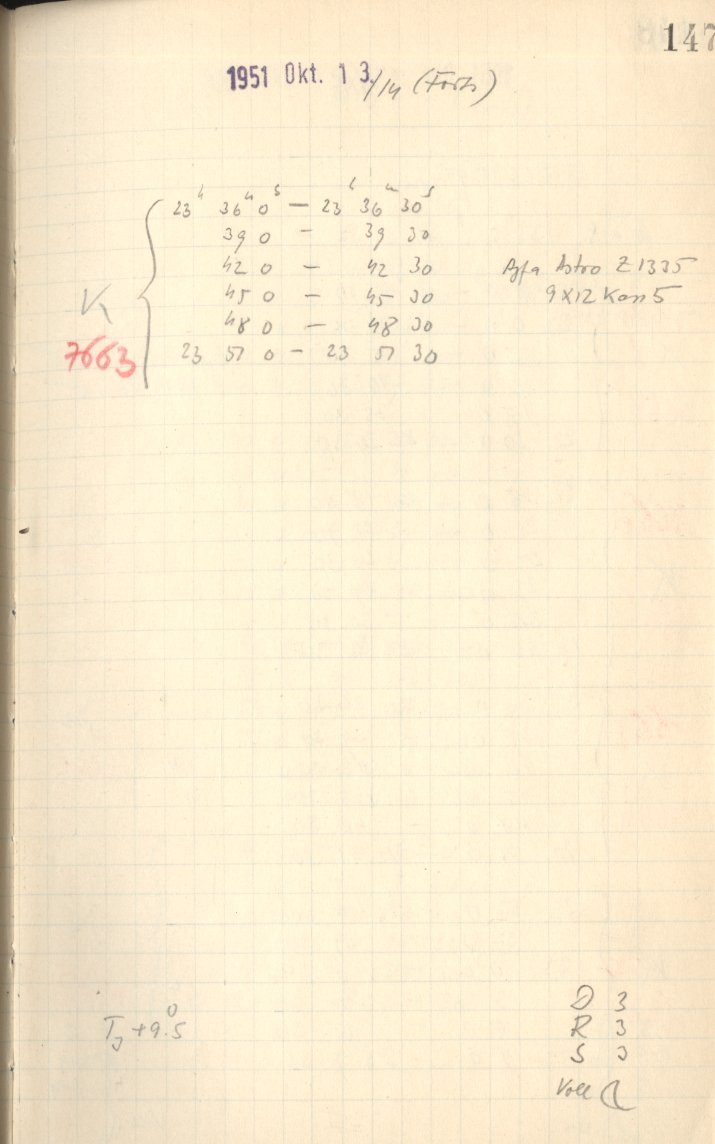 147
1951 Okt. 13./14 (Forts)
23ʰ 36ᵐ 0ˢ – 23ʰ 36ᵐ 30ˢ
39 0 – 39 30
42 0 – 42 30
45 0 – 45 30
48 0 – 48 30
23 51 0 – 23 51 30
7663
Agfa Astro Z 1335
9X12 Kass 5
+9.5°
D 3
R 3
S 3
Voll ☾